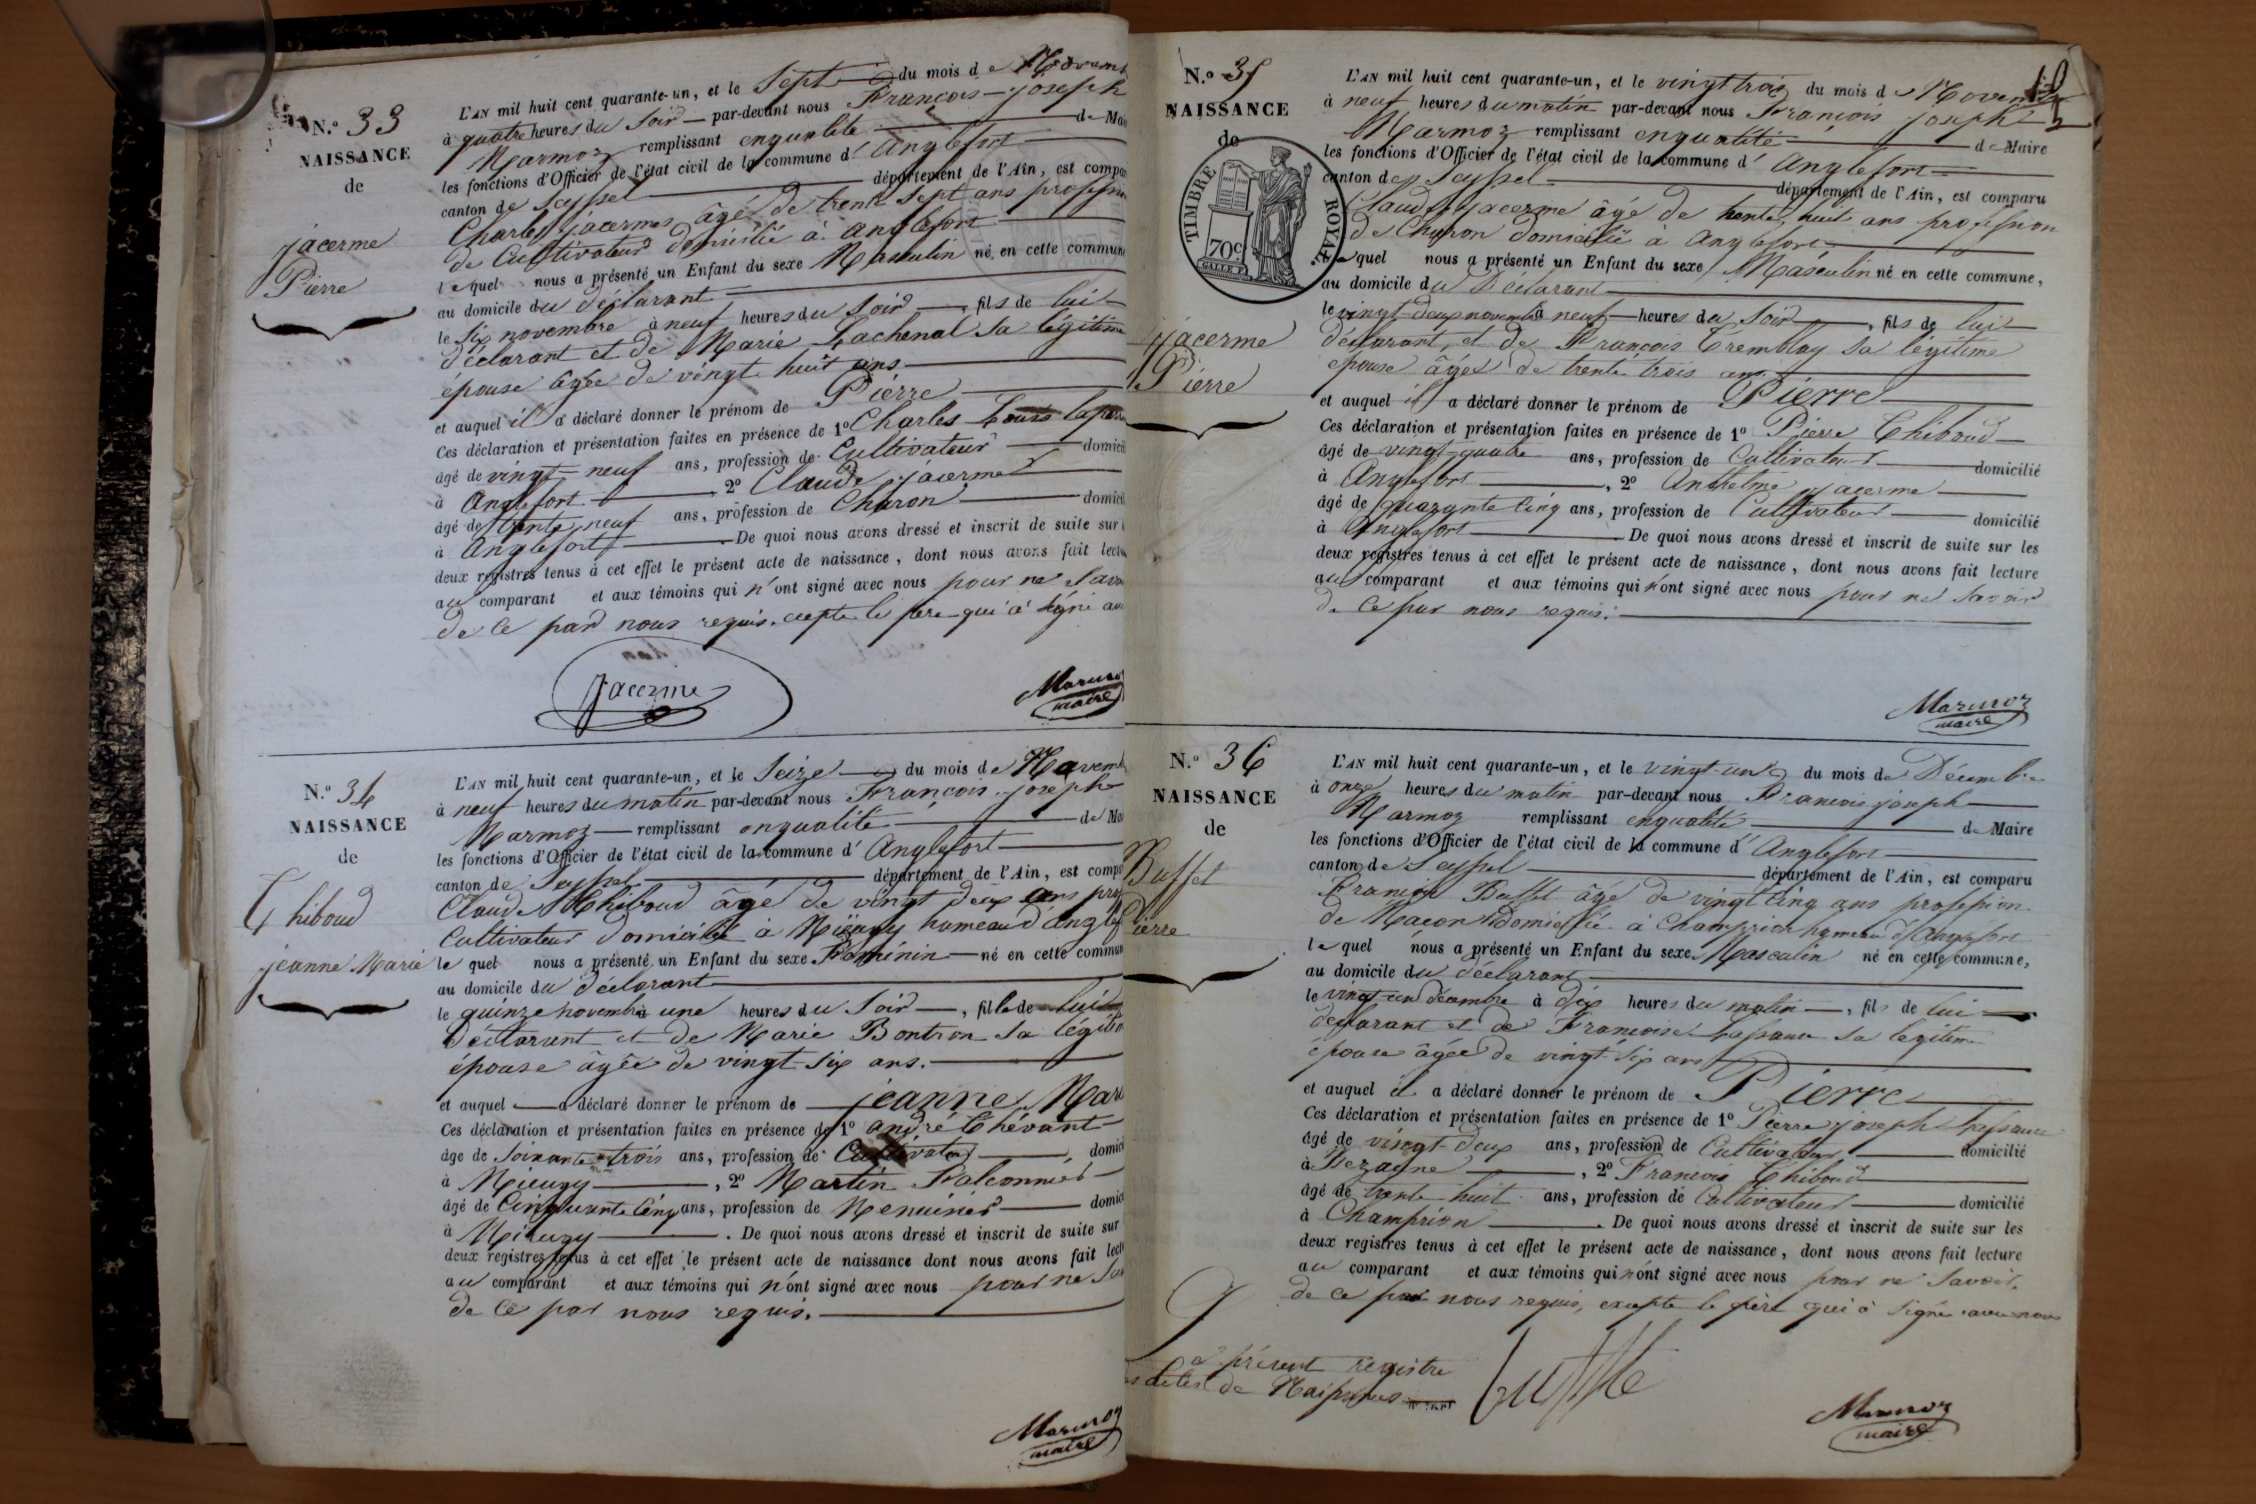 N.º 33
NAISSANCE
de
jacerme
Pierre
L'AN mil huit cent quarante-un, et le Sept du mois de Novemb
à quatre heures du Soir par-devant nous François joseph
Marmoz remplissant enqualité de Mai
les fonctions d'Officier de l'état civil de la commune d' Anglefort
canton de Seyssel département de l'Ain, est compa
Charles jacerme âgé de trente Sept ans profession
de Cultivateur domicilié à anglefort
lequel nous a présenté un Enfant du sexe Masculin né en cette commune
au domicile du déclarant
le Six novembre à neuf heures du Soir, fils de lui
déclarant et de Marie Lachenal Sa légitime
épouse âgée de vingt huit ans
et auquel il a déclaré donner le prénom de Pierre
Ces déclaration et présentation faites en présence de 1º Charles
âgé de vingt-neuf ans, profession de Cultivateur domici
à Anglefort, 2º Claude jacerme
âgé de trente neuf ans, profession de Charon domici
à Anglefort. De quoi nous avons dressé et inscrit de suite sur
deux registres tenus à cet effet le présent acte de naissance, dont nous avons fait lectu
au comparant et aux témoins qui n'ont signé avec nous pour ne Savo
de ce par nous requis. cepte le père qui a signé av
Jacerme
Marmoz
maire
N.º 34
NAISSANCE
de
Thiboud
jeanne Marie
L'AN mil huit cent quarante-un, et le Seize du mois de Novemb
à neuf heures du matin par-devant nous François joseph
Marmoz remplissant enqualité de Mai
les fonctions d'Officier de l'état civil de la commune d' Anglefort
canton de Seyssel département de l'Ain, est compa
Claude Thiboud âgé de vingt deux ans pro
Cultivateur domicilié à Mieugy hameau d'anglef
le quel nous a présenté un Enfant du sexe Féminin né en cette commun
au domicile du déclarant
le quinze novembre à une heure du Soir, fille de lui
Déclarant et de Marie Bontron Sa légiti
épouse âgée de vingt-Six ans.
et auquel a déclaré donner le prénom de jeanne Mari
Ces déclaration et présentation faites en présence de 1º andré Chévant
âgé de Soixante trois ans, profession de Cultivateur, domici
à Mieugy, 2º Martin Falconnier
âgé de Cinquante Cinq ans, profession de Menuisier domici
à Mieugy. De quoi nous avons dressé et inscrit de suite sur
deux registres tenus à cet effet le présent acte de naissance dont nous avons fait lect
au comparant et aux témoins qui n'ont signé avec nous pour ne Sa
de ce par nous requis.
Marmoz
maire
N.º 35
NAISSANCE
de
TIMBRE ROYAL
70c
jacerme
Pierre
L'AN mil huit cent quarante-un, et le vingt trois du mois de Novembre
à neuf heures du matin par-devant nous François joseph
Marmoz remplissant enqualité de Maire
les fonctions d'Officier de l'état civil de la commune d' Anglefort
canton de Seyssel département de l'Ain, est comparu
Claude jacerme âgé de trente huit ans profession
de Charon domicilié à Anglefort
le quel nous a présenté un Enfant du sexe Masculin né en cette commune,
au domicile du Déclarant
le vingt-deux novembre à neuf heures du Soir, fils de lui
déclarant, et de François Tremblay Sa légitime
épouse âgée de trente trois ans.
et auquel il a déclaré donner le prénom de Pierre
Ces déclaration et présentation faites en présence de 1º Pierre Thiboud
âgé de vingt-quatre ans, profession de Cultivateur domicilié
à Anglefort, 2º Anthelme jacerme
âgé de quarante Cinq ans, profession de Cultivateur domicilié
à Anglefort. De quoi nous avons dressé et inscrit de suite sur les
deux registres tenus à cet effet le présent acte de naissance, dont nous avons fait lecture
au comparant et aux témoins qui n'ont signé avec nous pour ne Savoir
de ce par nous requis.
Marmoz
maire
N.º 36
NAISSANCE
de
Buffet
Pierre
L'AN mil huit cent quarante-un, et le vingt-un du mois de Décembre
à onze heures du matin par-devant nous François joseph
Marmoz remplissant enqualité de Maire
les fonctions d'Officier de l'état civil de la commune d' Anglefort
canton de Seyssel département de l'Ain, est comparu
François Buffet âgé de vingt Cinq ans profession
de Maçon domicilié à Champrion hameau d'Anglefort
le quel nous a présenté un Enfant du sexe Masculin né en cette commune,
au domicile du déclarant
le vingt-un décembre à dix heures du matin, fils de lui
déclarant et de Françoise Sa légitime
épouse âgée de vingt-Six ans
et auquel il a déclaré donner le prénom de Pierre
Ces déclaration et présentation faites en présence de 1º Pierre joseph
âgé de vingt-deux ans, profession de Cultivateur domicilié
à, 2º François Thiboud
âgé de trente huit ans, profession de Cultivateur domicilié
à Champrion. De quoi nous avons dressé et inscrit de suite sur les
deux registres tenus à cet effet le présent acte de naissance, dont nous avons fait lecture
au comparant et aux témoins qui n'ont signé avec nous pour ne Savoir
de ce par nous requis, excepté le père qui a Signé avec nous
présent registre
de Naissances
Marmoz
maire